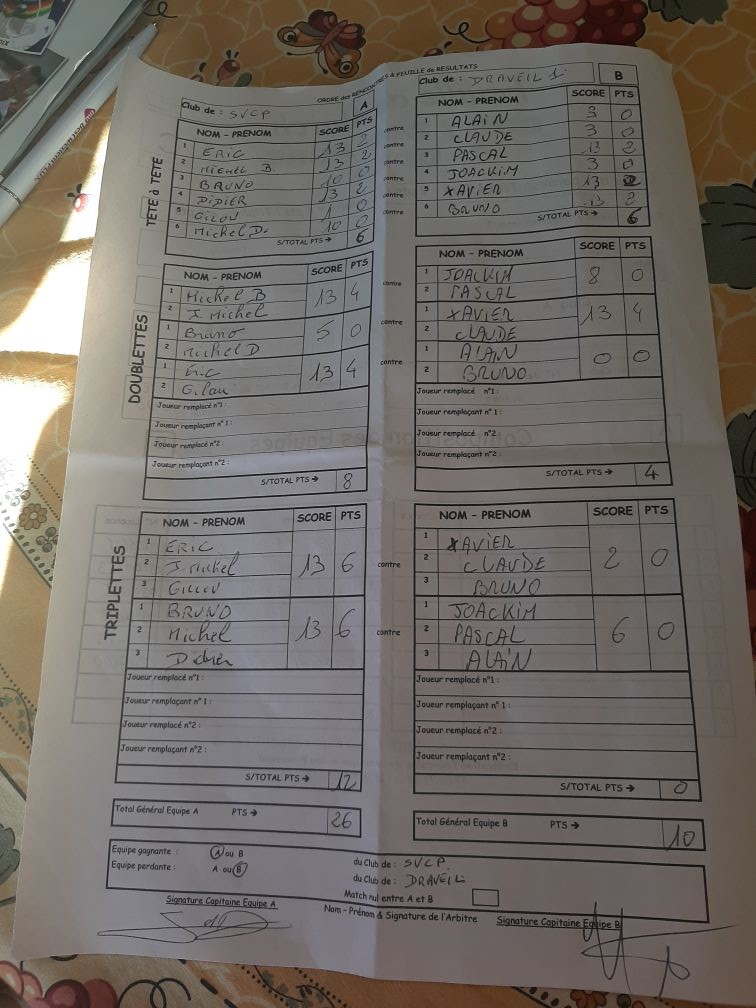 ORDRE des RENCONTRES & FEUILLE de RESULTATS
Club de : SVCP A
TÊTE à TÊTE
NOM - PRENOM SCORE PTS
1 ERIC 13 2
2 MICHEL B. 13 2
3 BRUNO 10 0
4 DIDIER 13 2
5 GILOU 1 0
6 Michel D. 10 0
S/TOTAL PTS → 6
contre
contre
contre
contre
contre
contre
Club de : DRAVEIL 1 B
NOM - PRENOM SCORE PTS
1 ALAIN 3 0
2 CLAUDE 3 0
3 PASCAL 13 2
4 JOACKIM 3 0
5 XAVIER 13 2
6 BRUNO 13 2
S/TOTAL PTS → 6
DOUBLETTES
NOM - PRENOM SCORE PTS
1 Michel B 13 4
2 J. Michel
1 Bruno 5 0
2 Michel D
1 13 4
2 Gilou
Joueur remplacé n°1 :
Joueur remplaçant n°1 :
Joueur remplacé n°2 :
Joueur remplaçant n°2 :
S/TOTAL PTS → 8
contre
contre
contre
NOM - PRENOM SCORE PTS
1 JOACKIM 8 0
2 PASCAL
1 XAVIER 13 4
2 CLAUDE
1 ALAIN 0 0
2 BRUNO
Joueur remplacé n°1 :
Joueur remplaçant n°1 :
Joueur remplacé n°2 :
Joueur remplaçant n°2 :
S/TOTAL PTS → 4
TRIPLETTES
NOM - PRENOM SCORE PTS
1 ERIC 13 6
2 J. Michel
3 GILLOU
1 BRUNO 13 6
2 Michel
3 Didier
Joueur remplacé n°1 :
Joueur remplaçant n°1 :
Joueur remplacé n°2 :
Joueur remplaçant n°2 :
S/TOTAL PTS → 12
contre
contre
NOM - PRENOM SCORE PTS
1 XAVIER 2 0
2 CLAUDE
3 BRUNO
1 JOACKIM 6 0
2 PASCAL
3 ALAIN
Joueur remplacé n°1 :
Joueur remplaçant n°1 :
Joueur remplacé n°2 :
Joueur remplaçant n°2 :
S/TOTAL PTS → 0
Total Général Equipe A PTS → 26
Total Général Equipe B PTS → 10
Equipe gagnante : A ou B du Club de : SVCP
Equipe perdante : A ou B du Club de : DRAVEIL
Match nul entre A et B
Signature Capitaine Equipe A
Nom - Prénom & Signature de l'Arbitre
Signature Capitaine Equipe B